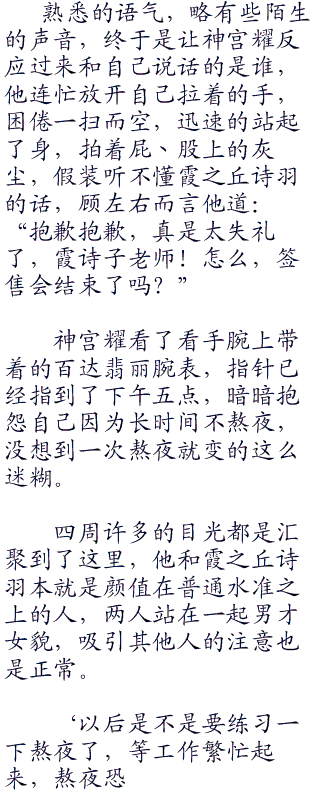 熟悉的语气，略有些陌生
的声音，终于是让神宫耀反
应过来和自己说话的是谁，
他连忙放开自己拉着的手，
困倦一扫而空，迅速的站起
了身，拍着屁、股上的灰
尘，假装听不懂霞之丘诗羽
的话，顾左右而言他道：
“抱歉抱歉，真是太失礼
了，霞诗子老师！怎么，签
售会结束了吗？”
神宫耀看了看手腕上带
着的百达翡丽腕表，指针已
经指到了下午五点，暗暗抱
怨自己因为长时间不熬夜，
没想到一次熬夜就变的这么
迷糊。
四周许多的目光都是汇
聚到了这里，他和霞之丘诗
羽本就是颜值在普通水准之
上的人，两人站在一起男才
女貌，吸引其他人的注意也
是正常。
‘以后是不是要练习一
下熬夜了，等工作繁忙起
来，熬夜恐